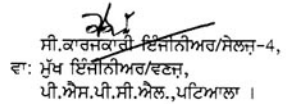 ਸੀ.ਕਾਰਜਕਾਰੀ ਇੰਜੀਨੀਅਰ/ਸੇਲਜ਼-4,
ਵਾ: ਮੁੱਖ ਇੰਜੀਨੀਅਰ/ਵਣਜ਼,
ਪੀ.ਐਸ.ਪੀ.ਸੀ.ਐਲ.,ਪਟਿਆਲਾ ।